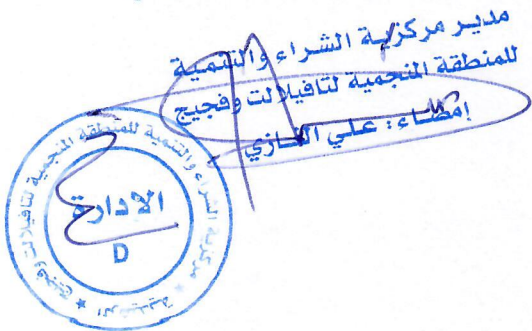 مدير مركزية الشراء والتنمية
للمنطقة المنجمية لتافيلالت وفجيج
إمضاء: علي الغازي
مركزية الشراء والتنمية للمنطقة المنجمية لتافيلالت وفجيج
الرشيدية
الادارة
D